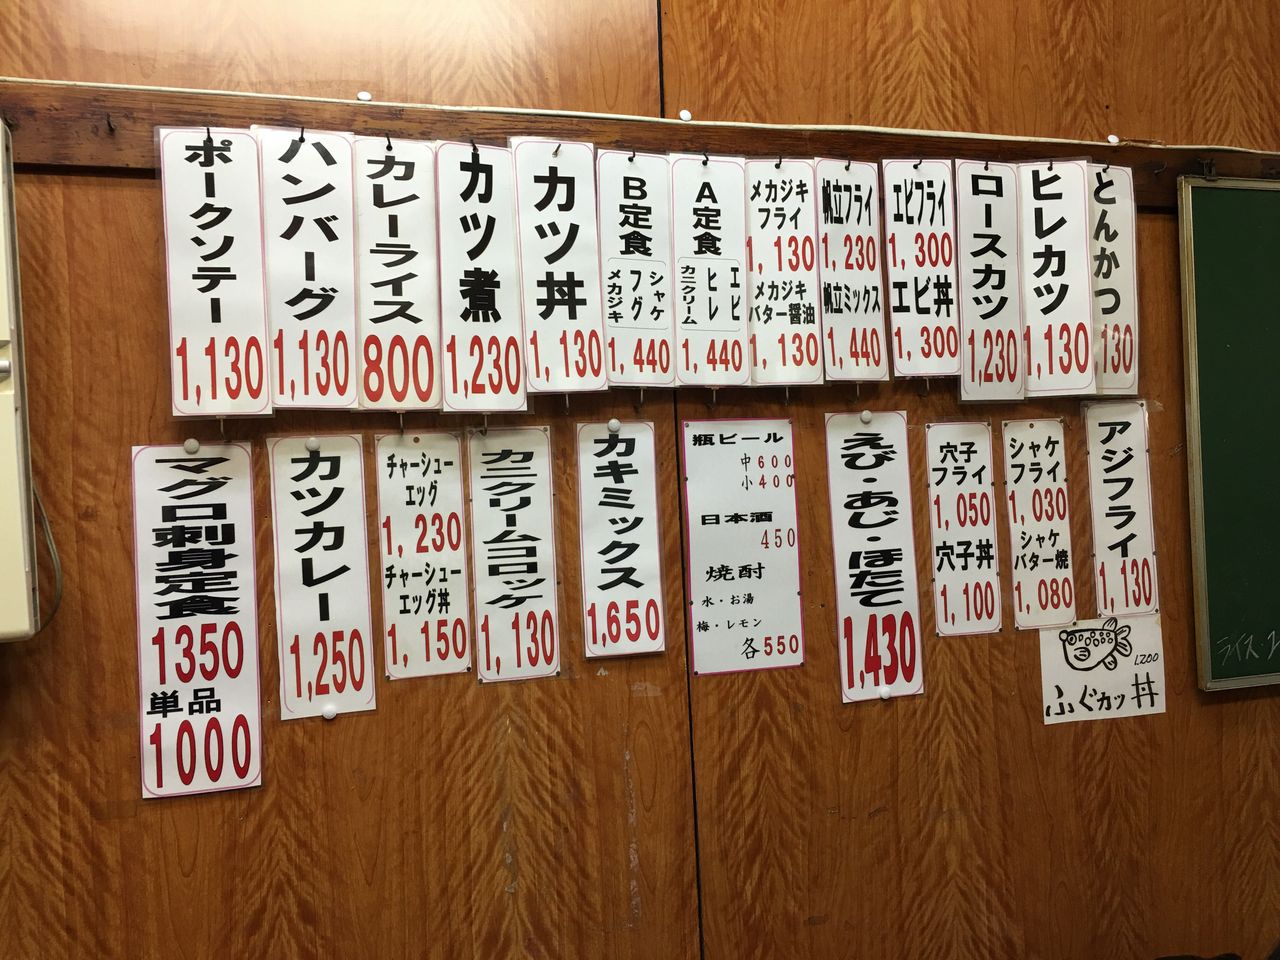 とんかつ
130
ヒレカツ
1,130
ロースカツ
1,230
エビフライ
1,300
エビ丼
1,300
帆立フライ
1,230
帆立ミックス
1,440
メカジキ
フライ
1,130
メカジキ
バター醤油
1,130
A定食
エビ
ヒレ
カニクリーム
1,440
B定食
シャケ
フグ
メカジキ
1,440
カツ丼
1,130
カツ煮
1,230
カレーライス
800
ハンバーグ
1,130
ポークソテー
1,130
アジフライ
1,130
シャケ
フライ
1,030
シャケ
バター焼
1,080
穴子
フライ
1,050
穴子丼
1,100
えび・あじ・ほたて
1,430
瓶ビール
中600
小400
日本酒
450
焼酎
水・お湯
梅・レモン
各550
カキミックス
1,650
カニクリームコロッケ
1,130
チャーシュー
エッグ
1,230
チャーシュー
エッグ丼
1,150
カツカレー
1,250
マグロ刺身定食
1350
単品
1000
1,200
ふぐカツ丼
ライス